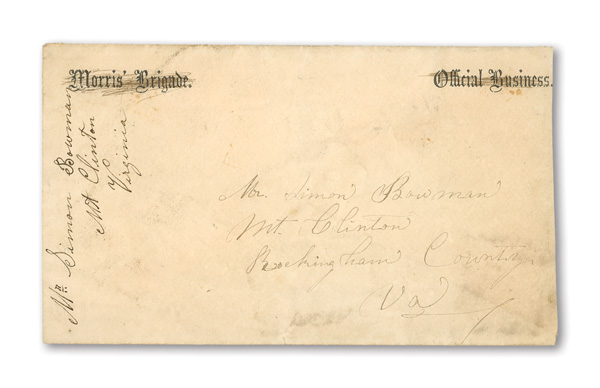 Morris' Brigade.
Official Business.
Mr. Simon Bowman
Mt Clinton
Virginia
Mr. Simon Bowman
Mt. Clinton
Rockingham County
Va